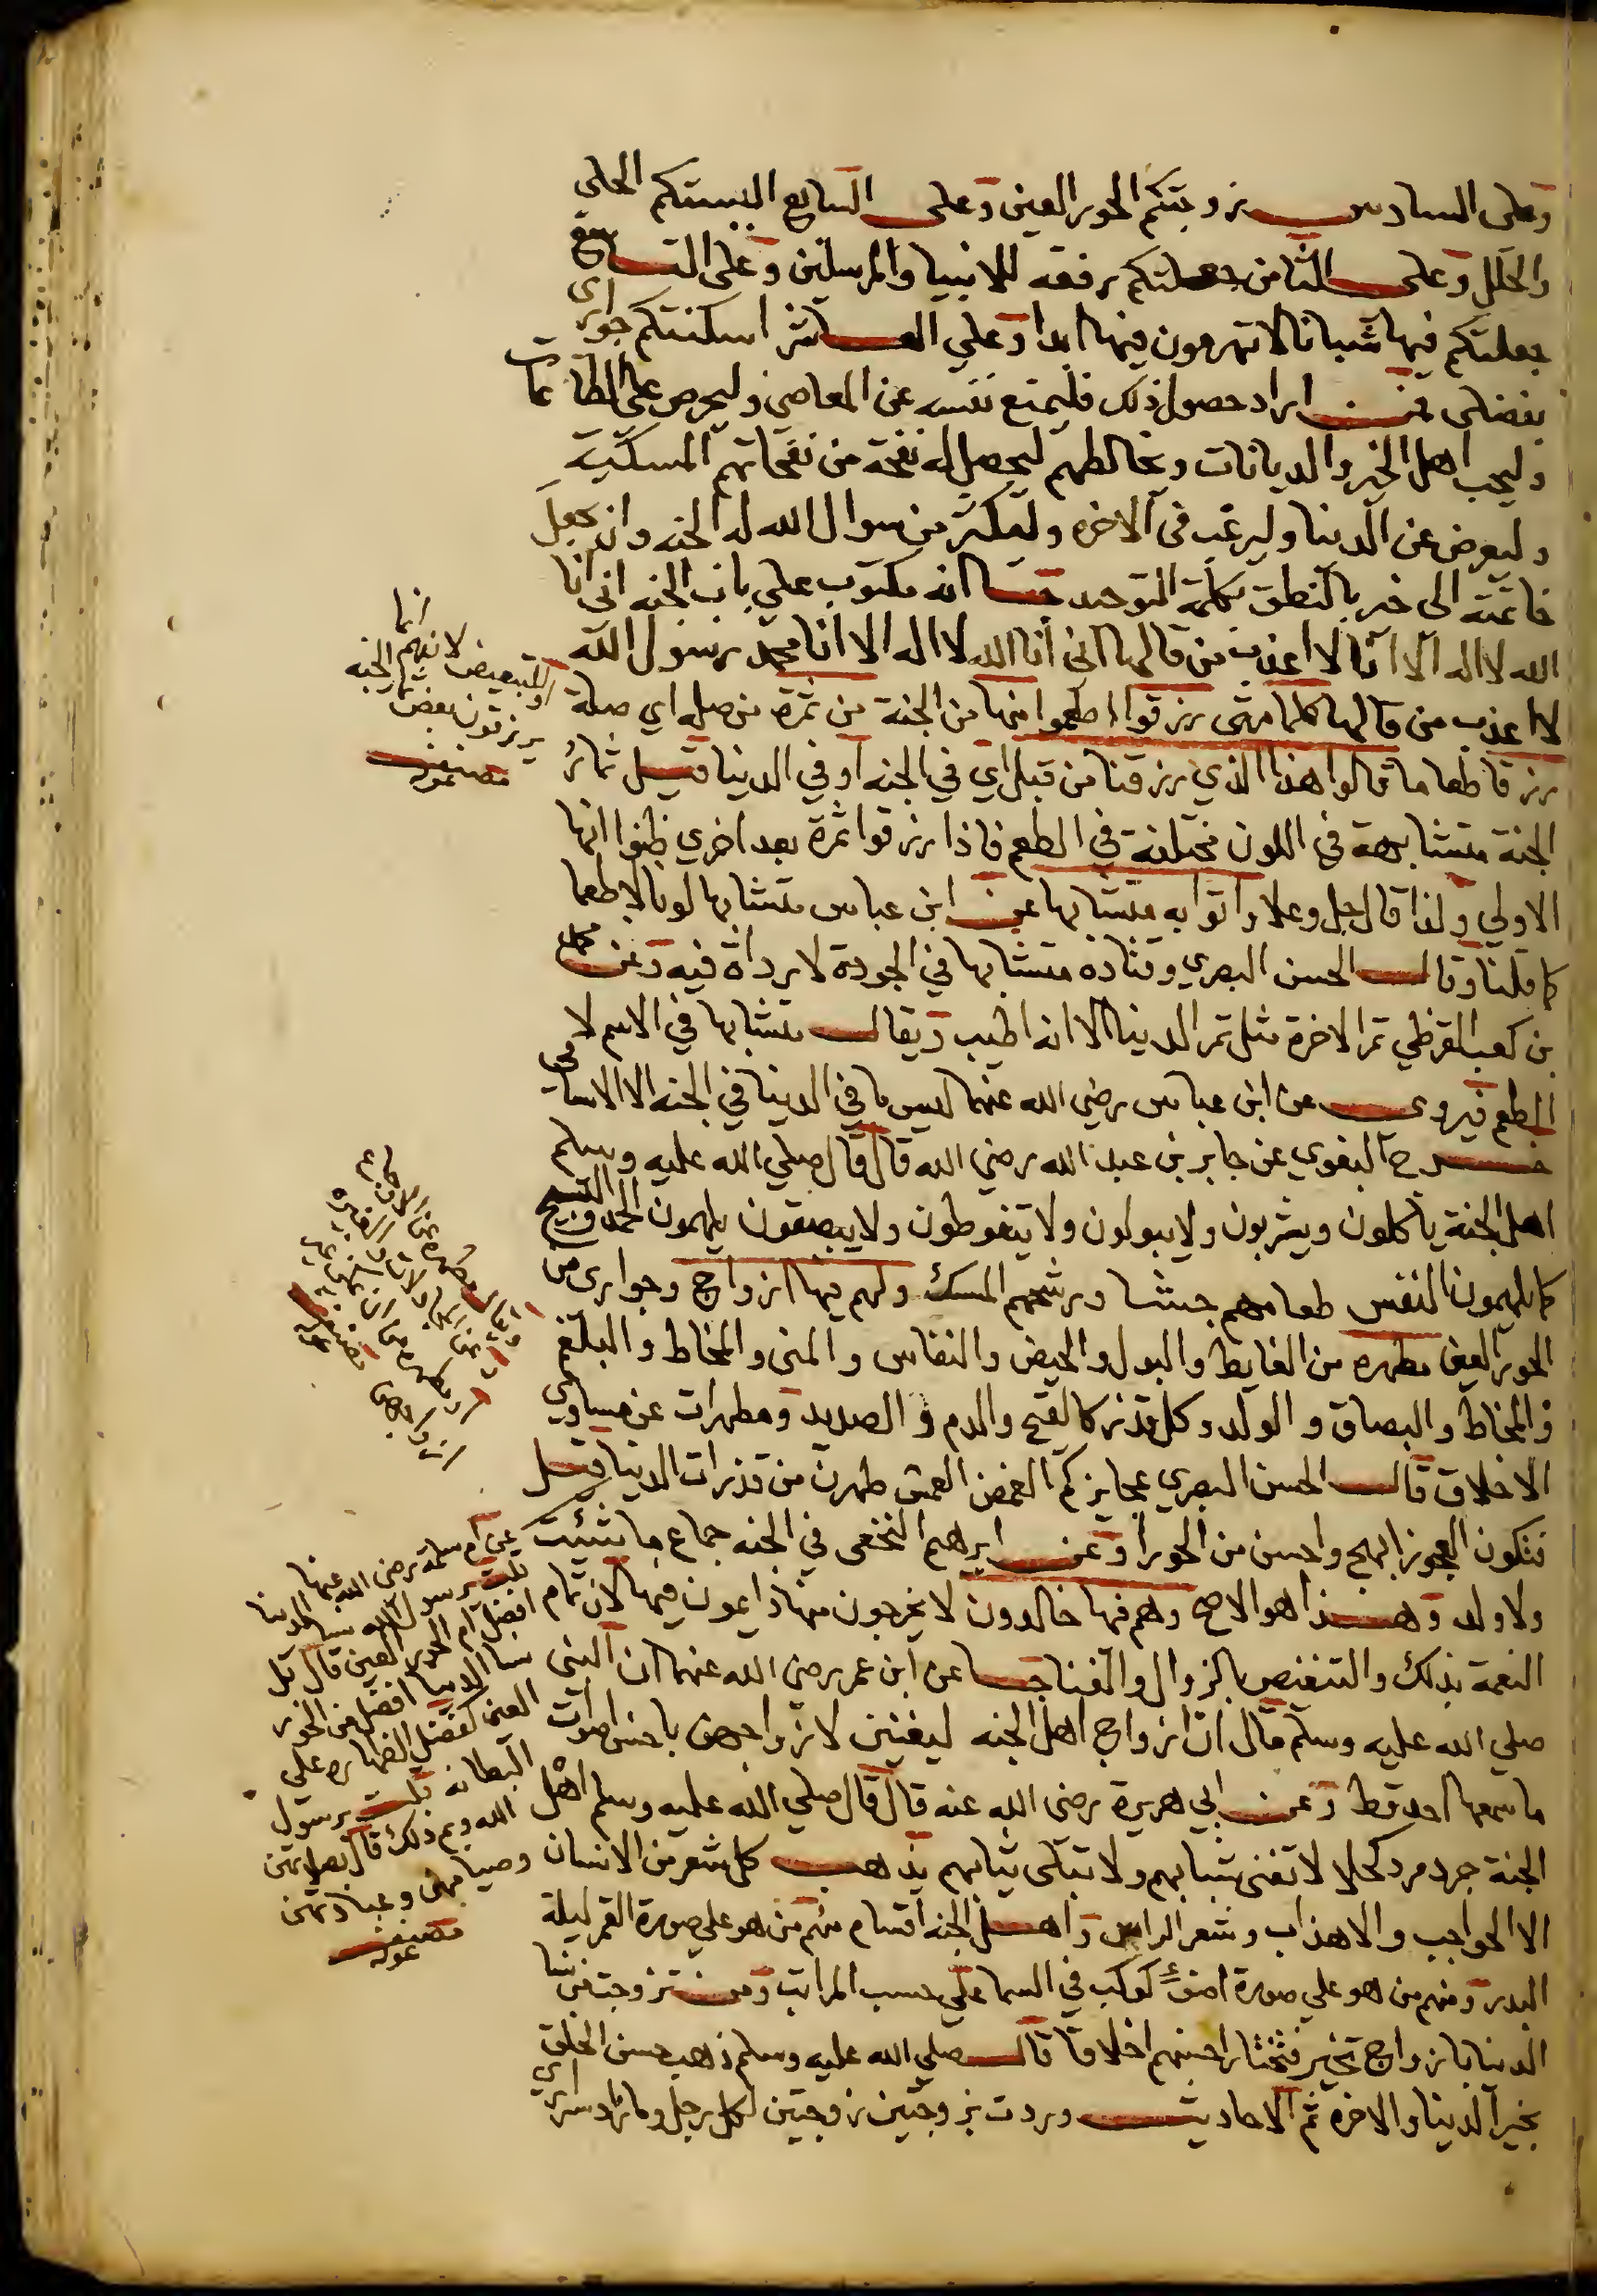 وعلى السادس زوجتكم الحور العين وعلى السابع البستكم الحلي
والحلل وعلى الثامن جعلتكم رفقه للانبيا والمرسلين وعلى التاسع
جعلتكم فيها شبانا لا تهرمون فيها ابدا وعلي العاشر اسكنتكم جواري
بفضلى فمن اراد حصول ذلك فليمنع نفسه عن المعاصي وليحرص على الطاعات
وليحب اهل الخير والديانات ويخالطهم ليحصل له نفحة من نفحاتهم المسكية
وليعرض عن الدنيا وليرغب في الاخرة وليكثر من سوال الله له الجنه وان يجعل
خاتمته الى خير بالنطق بكلمة التوحيد انه مكتوب علي باب الجنه انى انا
الله لا اله الا انا لا اعذب من قالها انى انا الله لا اله الا انا محمد رسول الله
لا اعذب من قالها كلما متى رزقوا اطعموا منها من الجنة من ثمرة من صله اي صلة
رزقا طعاما قالوا هذا الذي رزقنا من قبل اي في الجنه او في الدنيا قيل ثمار
الجنة متشابهة في اللون مختلفة في الطعم فاذا رزقوا ثمرة بعد اخري ظنوا انها
الاولي ولذا قال جل وعلا واتوا به متشابها عن ابن عباس متشابها لونا لا طعما
كما قلنا وقال الحسن البصري وقتادة متشابها في الجودة لا رداة فيه وعن محمد
بن كعب القرظي ثمر الاخرة مثل ثمر الدنيا الا انه اطيب ويقال متشابها في الاسم لا في
الطعم فيروى عن ابن عباس رضي الله عنهما ليس مما في الدنيا في الجنه الا الاسامي
خرج البغوي عن جابر بن عبد الله رضي الله قال قال صلي الله عليه وسلم
اهل الجنة ياكلون ويشربون ولا يبولون ولا يتغوطون ولا يبصقون يلهمون الحمد والتسبيح
كما يلهمون النفس طعامهم جشا ورشحهم المسك ولهم فيها ازواج وجواري من
الحور العين مطهره من الغايط والبول والحيض والنفاس والمنى والمخاط والبلغم
والمخاط والبصاق والولد وكل قذر كالقيح والدم والصديد ومطهرات عن مساوي
الاخلاق قال الحسن البصري عجايزكم الغمص العمش طهرن من قذرات الدنيا قيل
فتكون العجوز ابهج واحسن من الحورا وعن ابرهيم النخعي في الجنه جماع ما شئت
ولا ولد وهذا هو الاصح وهم فيها خالدون لا يخرجون منها دايمون فيها لان تمام
النعمة بذلك والتنغص بالزوال والفنا عن ابن عمر رضي الله عنهما ان النبي
صلي الله عليه وسلم قال ان ازواج اهل الجنه ليغنين لازواجهن باحسن اصوات
ما سمعها احد قط وعن ابي هريرة رضى الله عنه قال قال صلي الله عليه وسلم اهل
الجنة جرد مرد كحلا لا تفنى شبابهم ولا تبلى ثيابهم يذهب كل شعر من الانسان
الا الحواجب والاهداب وشعر الراس واهل الجنه اقسام منهم من هو علي صورة القمر ليلة
البدر ومنهم من هو علي صورة اضوء كوكب في السما علي حسب المراتب ومن تزوجت من نسا
الدنيا بازواج تخير فتختار احسنهم اخلاقا قال صلي الله عليه وسلم ذهب حسن الخلق
بخير الدنيا والاخرة ثم الاحاديث وردت بزوجتين زوجتين لكل رجل وما زاد سراري
او للتبعيض لانهم انما
يرزقون بعض ثمار الجنه
مصنفه
عن ام سلمة رضي الله عنها
قلت يرسول الله نسا الدنيا
افضل ام الحور العين قال بل
نسا الدنيا افضل من الحور
العين كفضل الظهارة على
البطانه قلت يرسول
الله وبم ذلك قال بصلاتهن
وصيامهن وعبادتهن
مصنفه